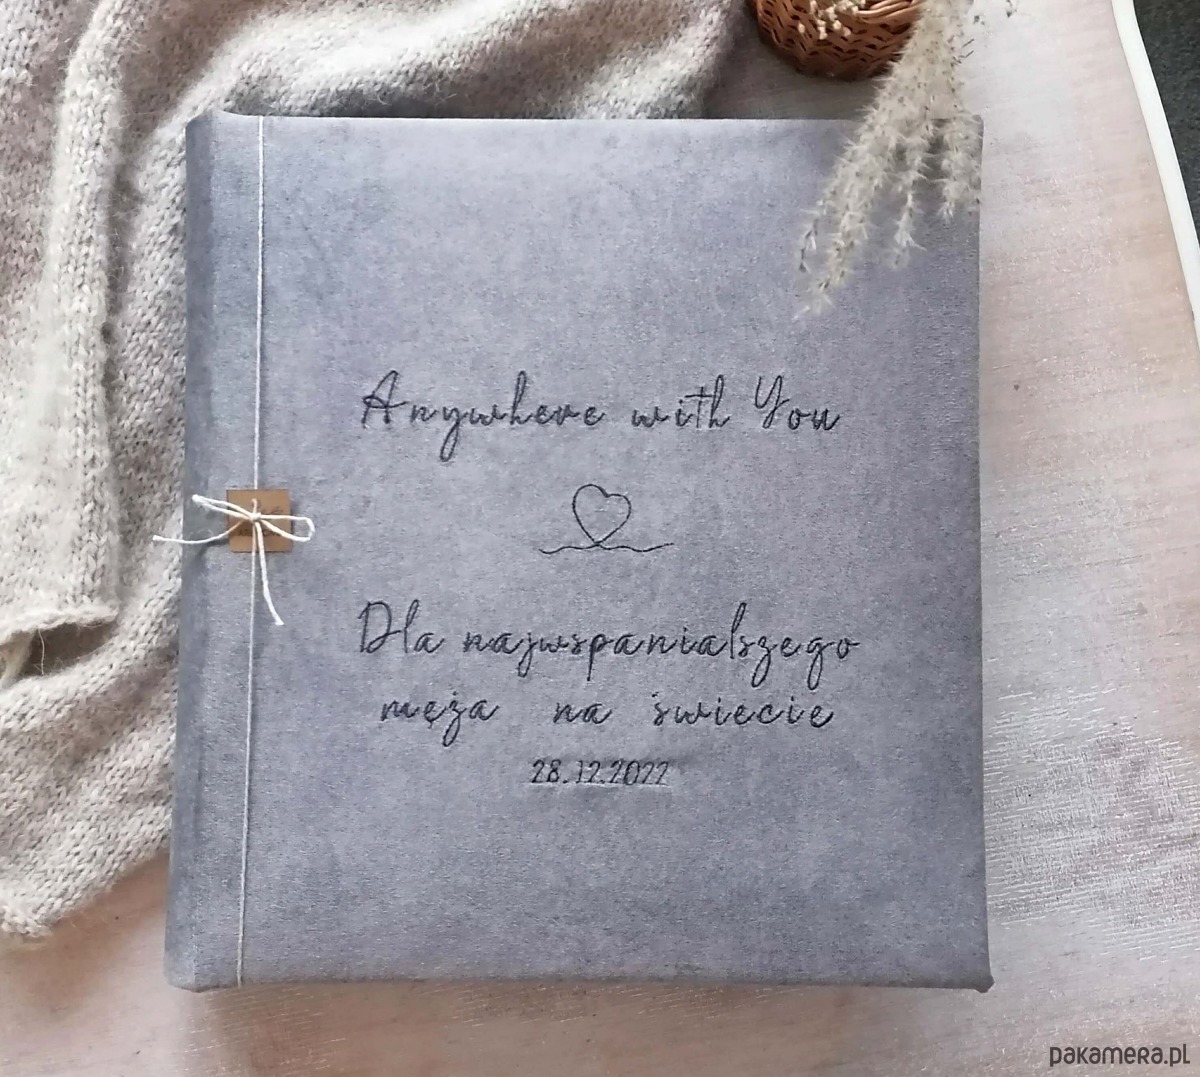 Anywhere with You
Dla najwspanialszego
męża na świecie
28.12.2022
pakamera.pl